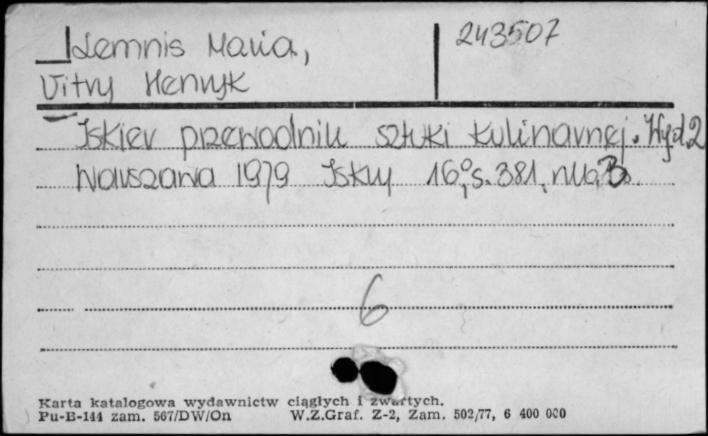 Lemnis Maria,
243507
Vitry Henryk
Iskier przewodnik sztuki kulinarnej. Wyd. 2
Warszawa 1979 Iskry 16°, s. 381, nlb 3.
6
Karta katalogowa wydawnictw ciągłych i zwartych.
Pu-B-144 zam. 567/DW/On W.Z.Graf. Z-2, Zam. 502/77, 6 400 000